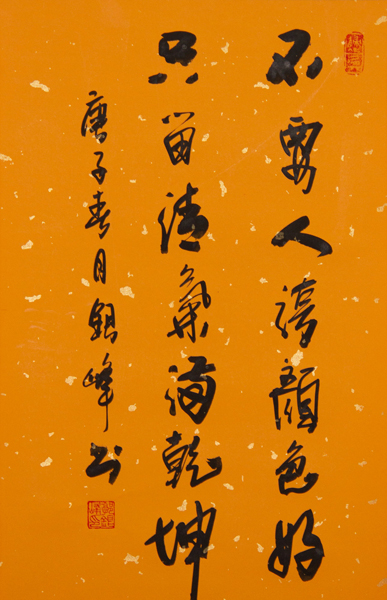 不要人誇顏色好
只留清氣滿乾坤
庚子春月銀峰书